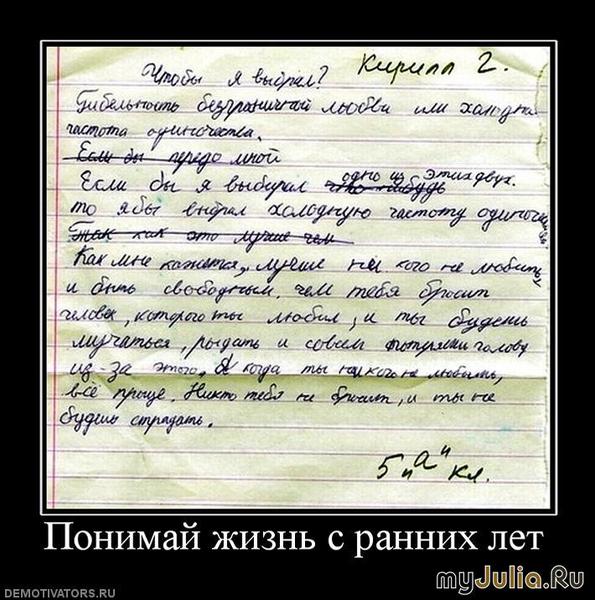 Чтобы я выбрал? Кирилл 2.
Гибельность безграничной любви или холодна
частота одиночества.
Если бы передо мной
Если бы я выбирал что-нибудь одно из этих двух.
то ябы выбрал холодную частоту одиночества
Так как это лучше чем
Как мне кажется, лучше ни кого не любить,
и быть свободным, чем тебя бросит
человек, которого ты любил, и ты будешь
мучаться, рыдать и совсем потеряеш голову
из-за этого. А когда ты ни кого не любишь,
всё проще. Никто тебя не бросит, и ты не
будешь страдать.
5 "а" кл.
Понимай жизнь с ранних лет
myJulia.Ru
DEMOTIVATORS.RU